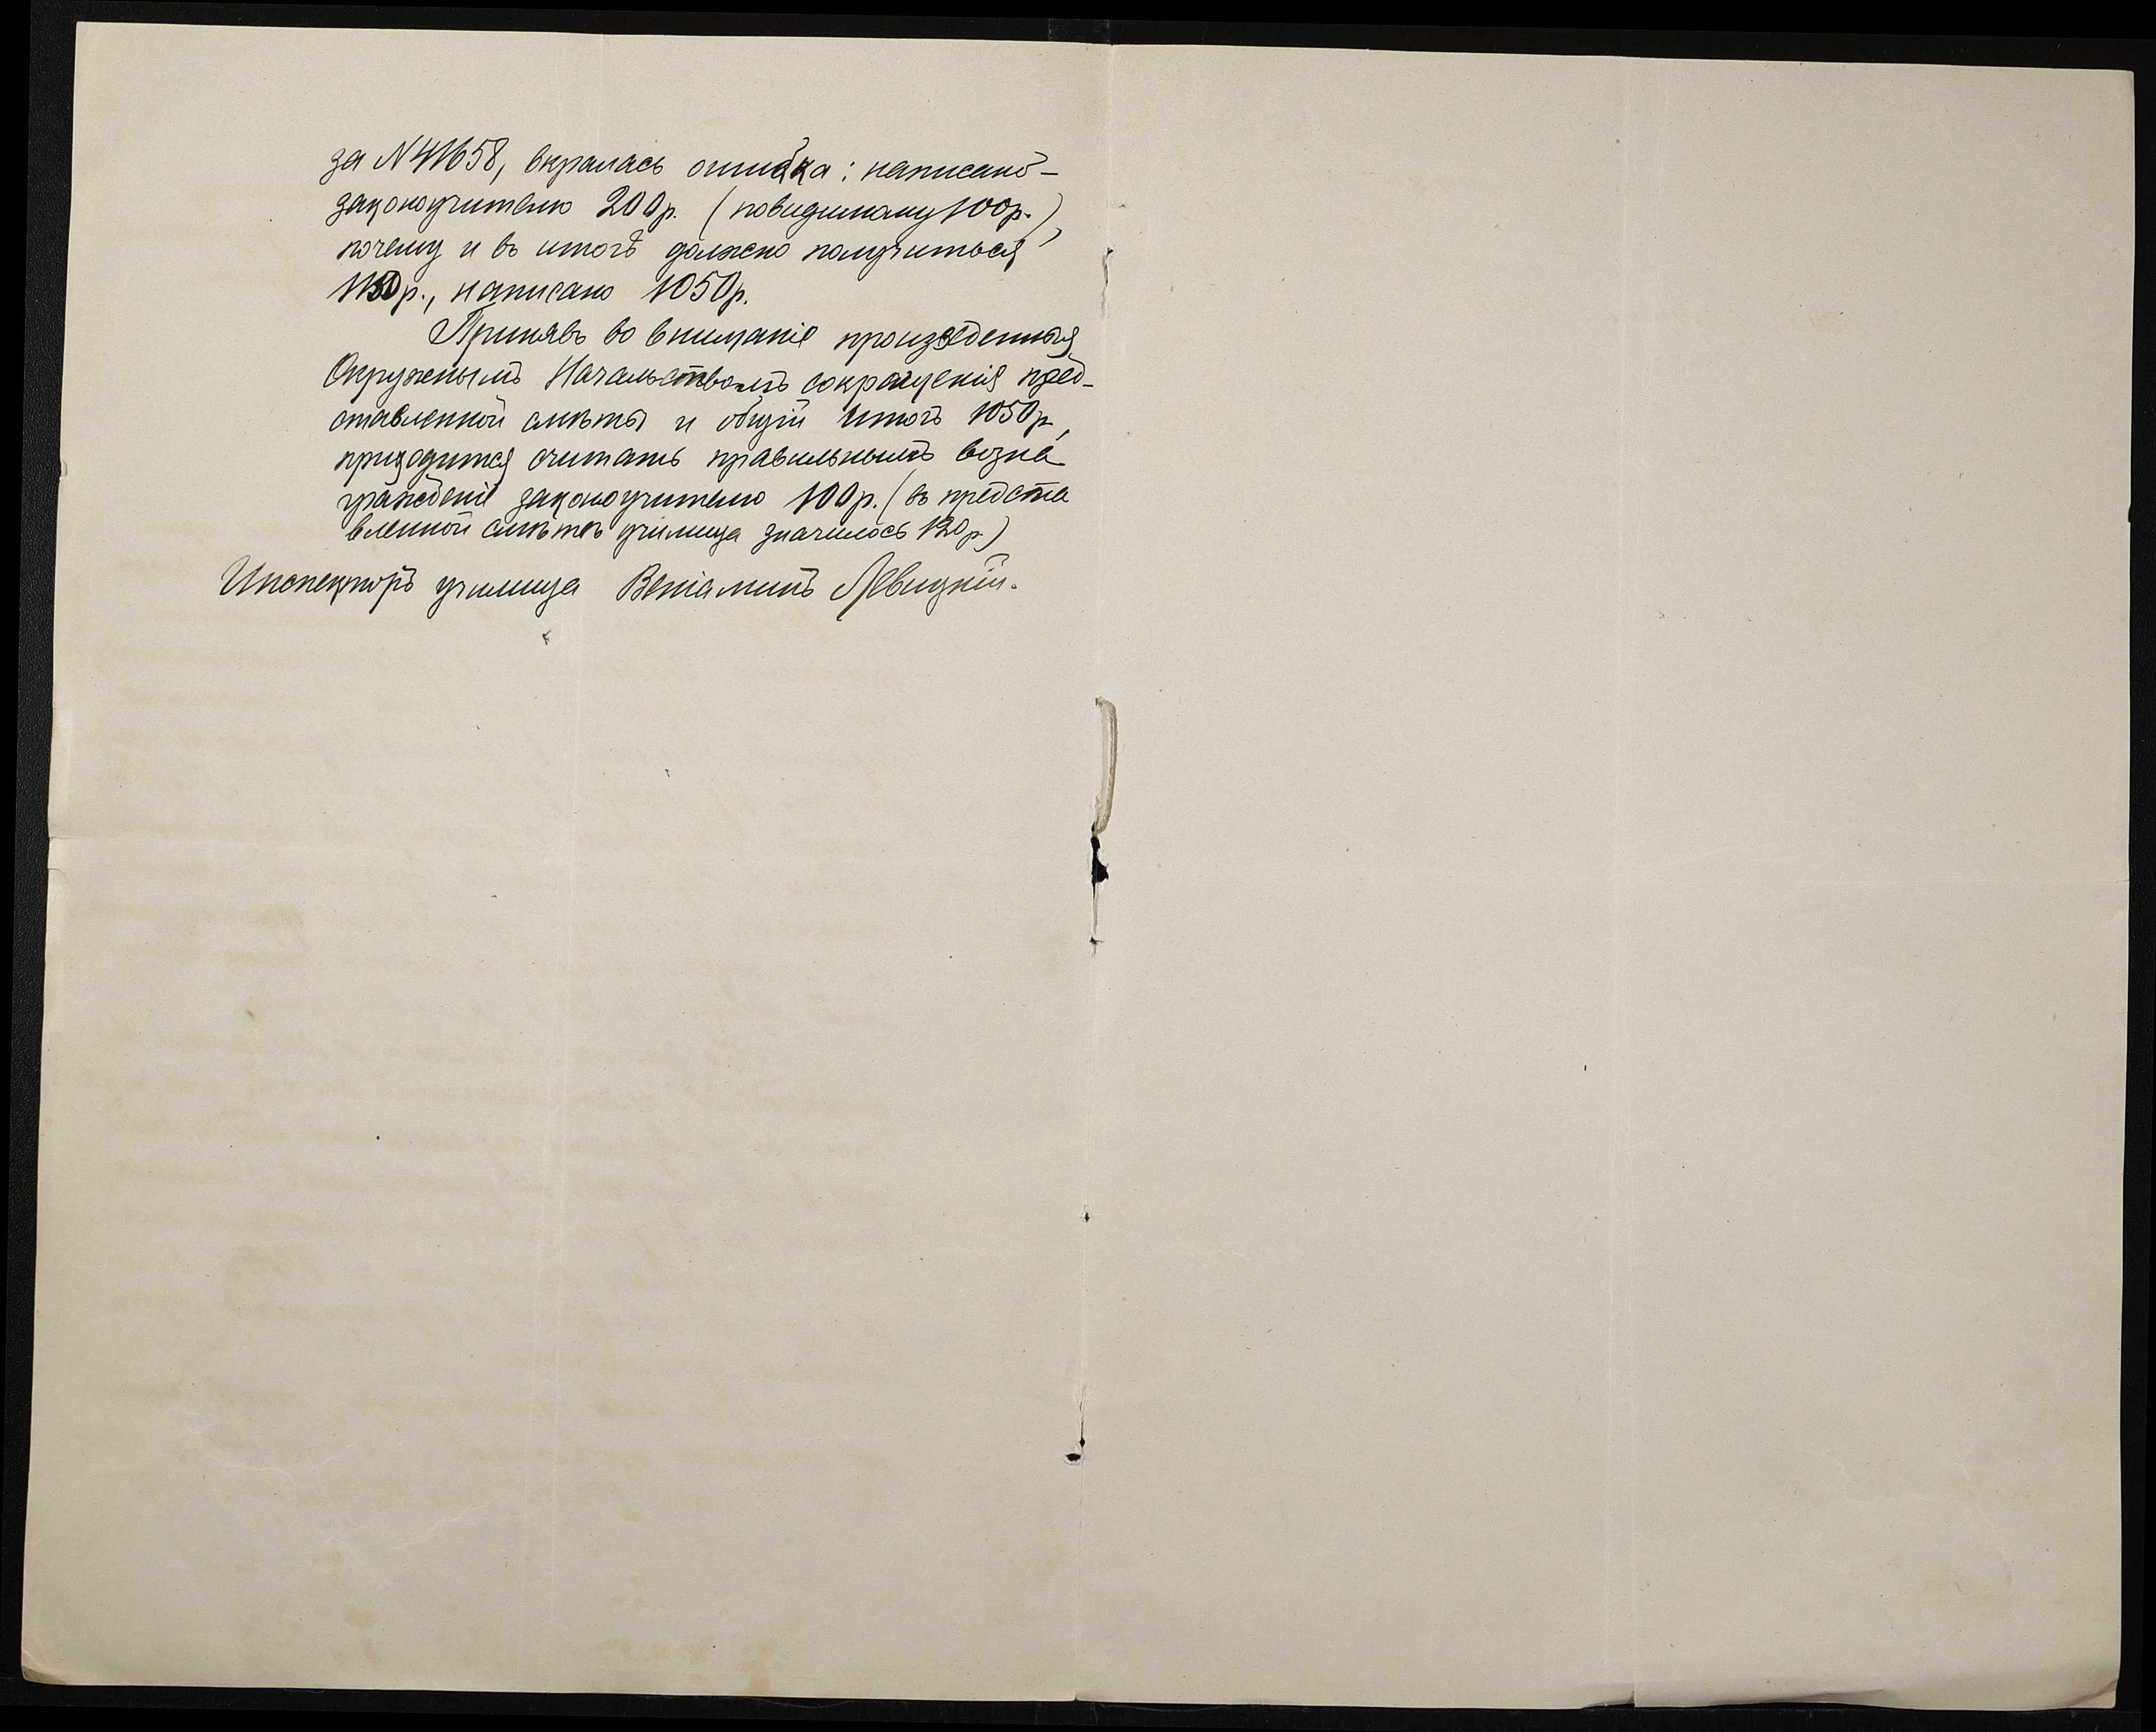 за N 41658, вкралась ошибка: написано –
законоучителю 200р. (повидимому 100р.),
почему и въ итогѣ должно получиться
1150р., написано 1050р.
Принявъ во вниманіе произведенныя
Окружнымъ Начальствомъ сокращенія пред-
ставленной смѣты и общій итогъ 1050р.,
приходится считать правильнымъ возна-
гражденіе законоучителю 100р. (въ предста
вленной смѣтѣ училища значилось 120р.)
Инспекторъ училища Веніаминъ Левицкій.